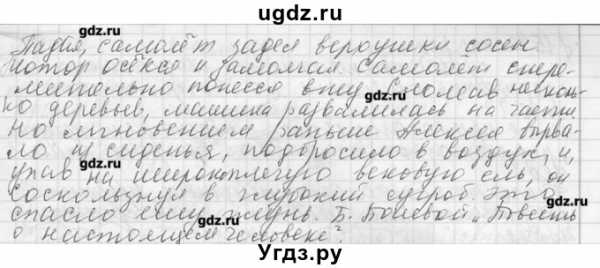 ugdz.ru
Падая, самолёт задел верхушки сосен
Мотор осёкся и замолчал. Самолёт стре-
мительно понёсся вниз. Сломав несколь-
ко деревьев, машина развалилась на части
но мгновением раньше Алексея вырва-
ло из сиденья, подбросило в воздух, и,
упав на широкоплечую вековую ель, он
соскользнул в глубокий сугроб. Это
спасло ему жизнь. Б. Полевой „Повесть
о настоящем человеке".
gdz.ru
gdz.ru
gdz.ru
gdz.ru
gdz.ru
gdz.ru
Угдз.ру